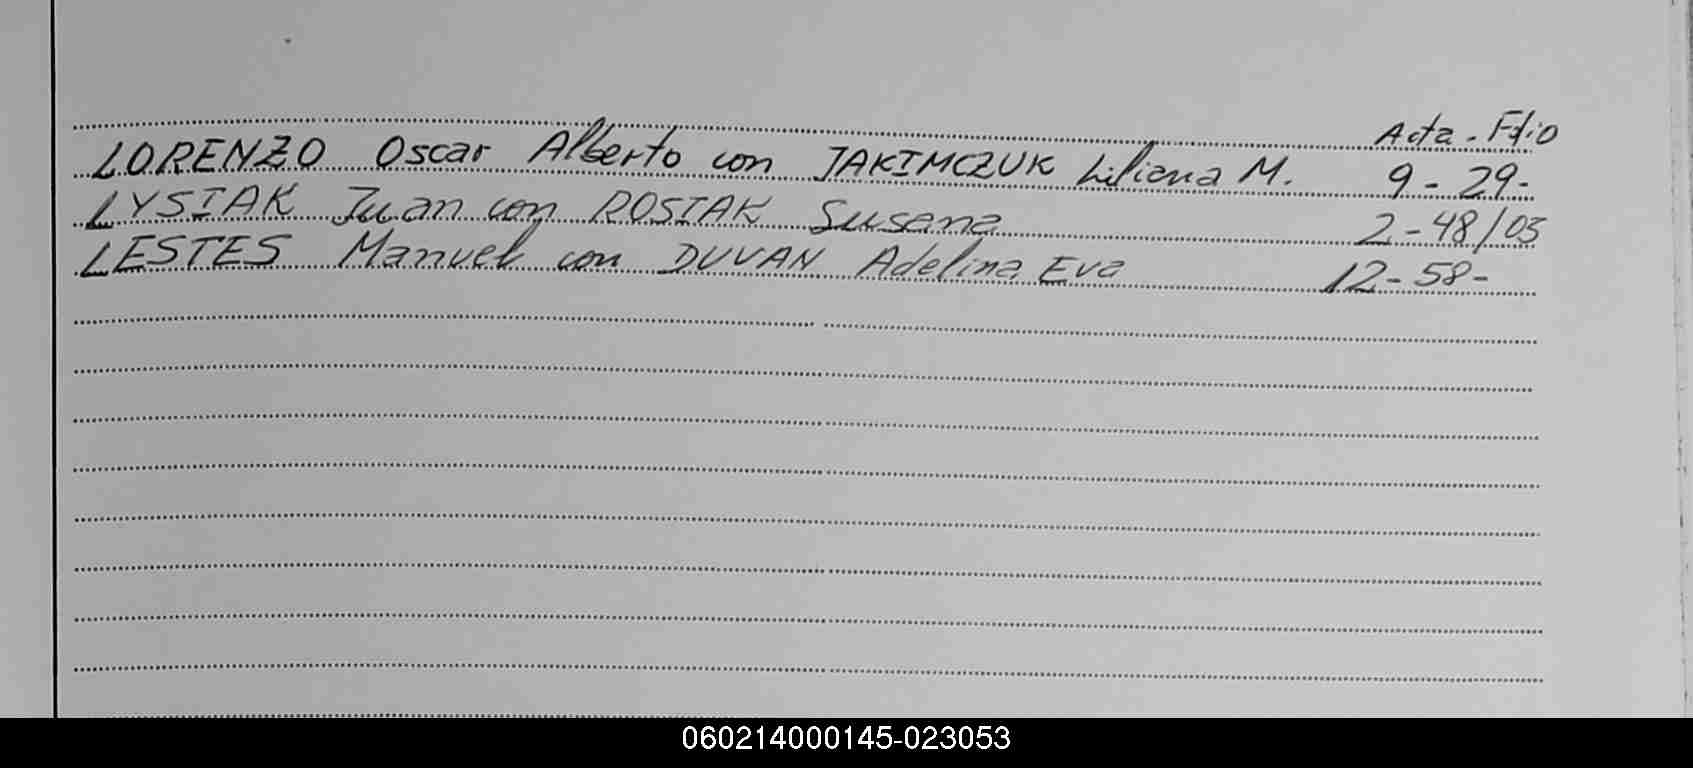 Acta - Folio
LORENZO Oscar Alberto con JAKIMCZUK Liliana M. 9 - 29 -
LYSIAK Juan con ROSIAK Susana 2 - 48/03
LESTES Manuel con DUVAN Adelina Eva 12 - 58 -
060214000145-023053